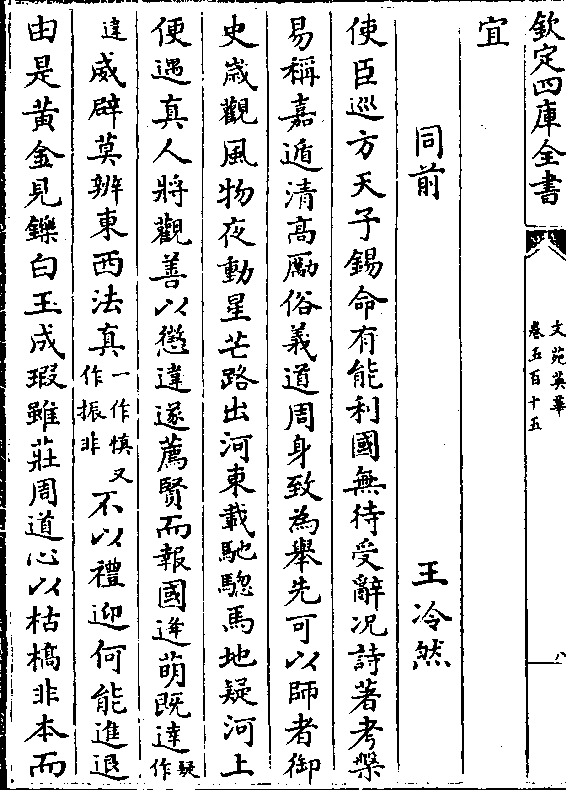 欽定四庫全書
文苑英華
卷五百十五
八
宜
同前 王冷然
使臣巡方天子錫命有能利國無待受辭况詩著考槃
易稱嘉遁清高厲俗義道周身致為舉先可以師者御
史歲觀風物夜動星芒路出河東載馳驄馬地疑河上
便遇真人將觀善以懲違遂薦賢而報國逢萌既達疑作
違威辟莫辨東西法真一作慎又作振非不以禮迎何能進退
由是黃金見鑠白玉成瑕雖莊周道心以枯槁非本而